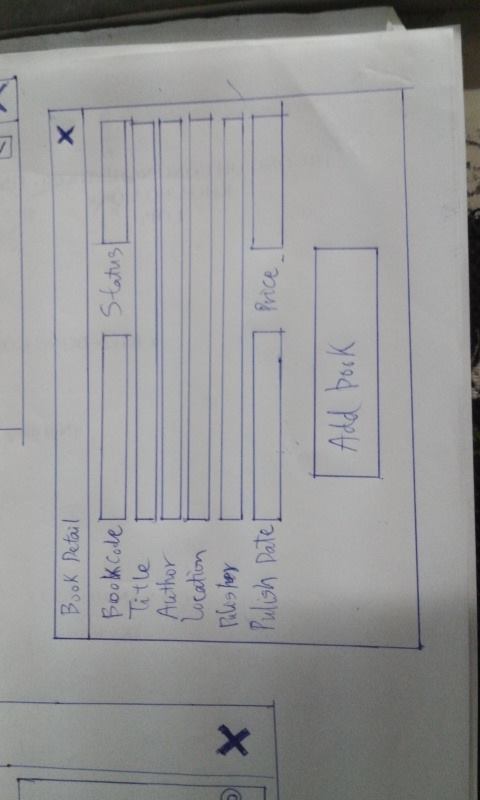 Book Detail
Bookcode Status
Title
Author
Location
Pulisher
Pulish Date Price
Add book